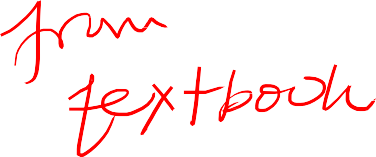 from
textbook